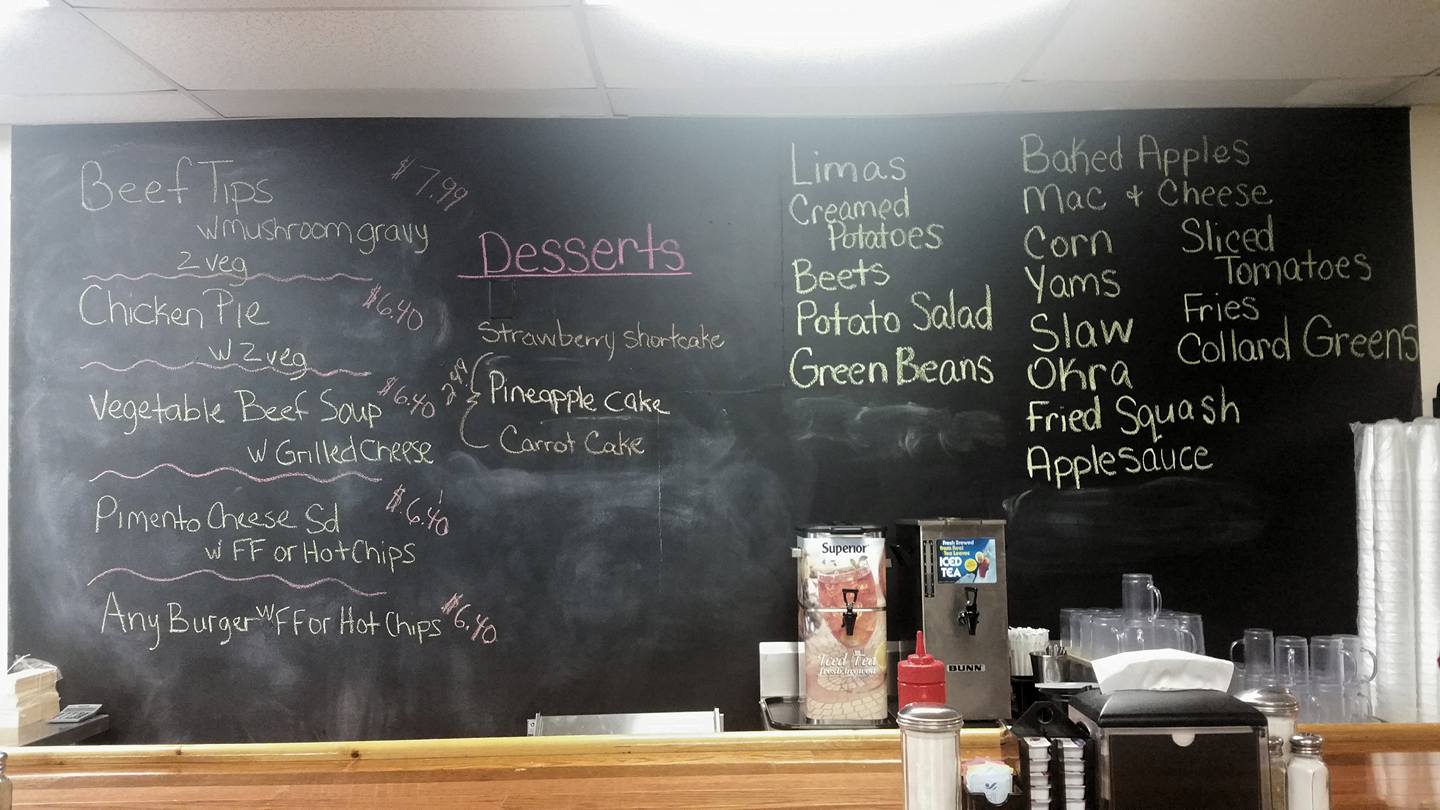 Beef Tips $7.99
w mushroom gravy
2 veg
Chicken Pie $6.40
w 2 veg
Vegetable Beef Soup $6.40
w Grilled Cheese
Pimento Cheese Sd $6.40
w FF or Hot Chips
Any Burger w FF or Hot Chips $6.40
Desserts
Strawberry shortcake
2.49
Pineapple cake
Carrot Cake
Limas
Creamed
Potatoes
Beets
Potato Salad
Green Beans
Baked Apples
Mac & Cheese
Corn
Yams
Slaw
Okra
Fried Squash
Applesauce
Sliced
Tomatoes
Fries
Collard Greens
Superior
Iced Tea
fresh brewed
Fresh Brewed
from Real
Tea Leaves
ICED
TEA
BUNN